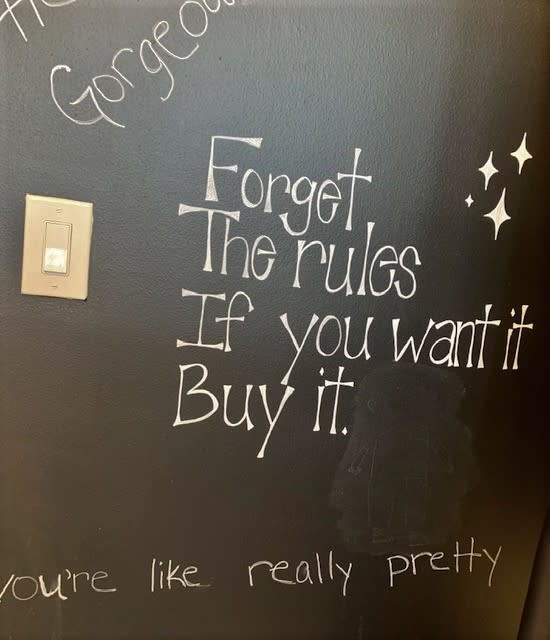 Gorgeou
Forget
The rules
If you want it
Buy it.
you're like really pretty